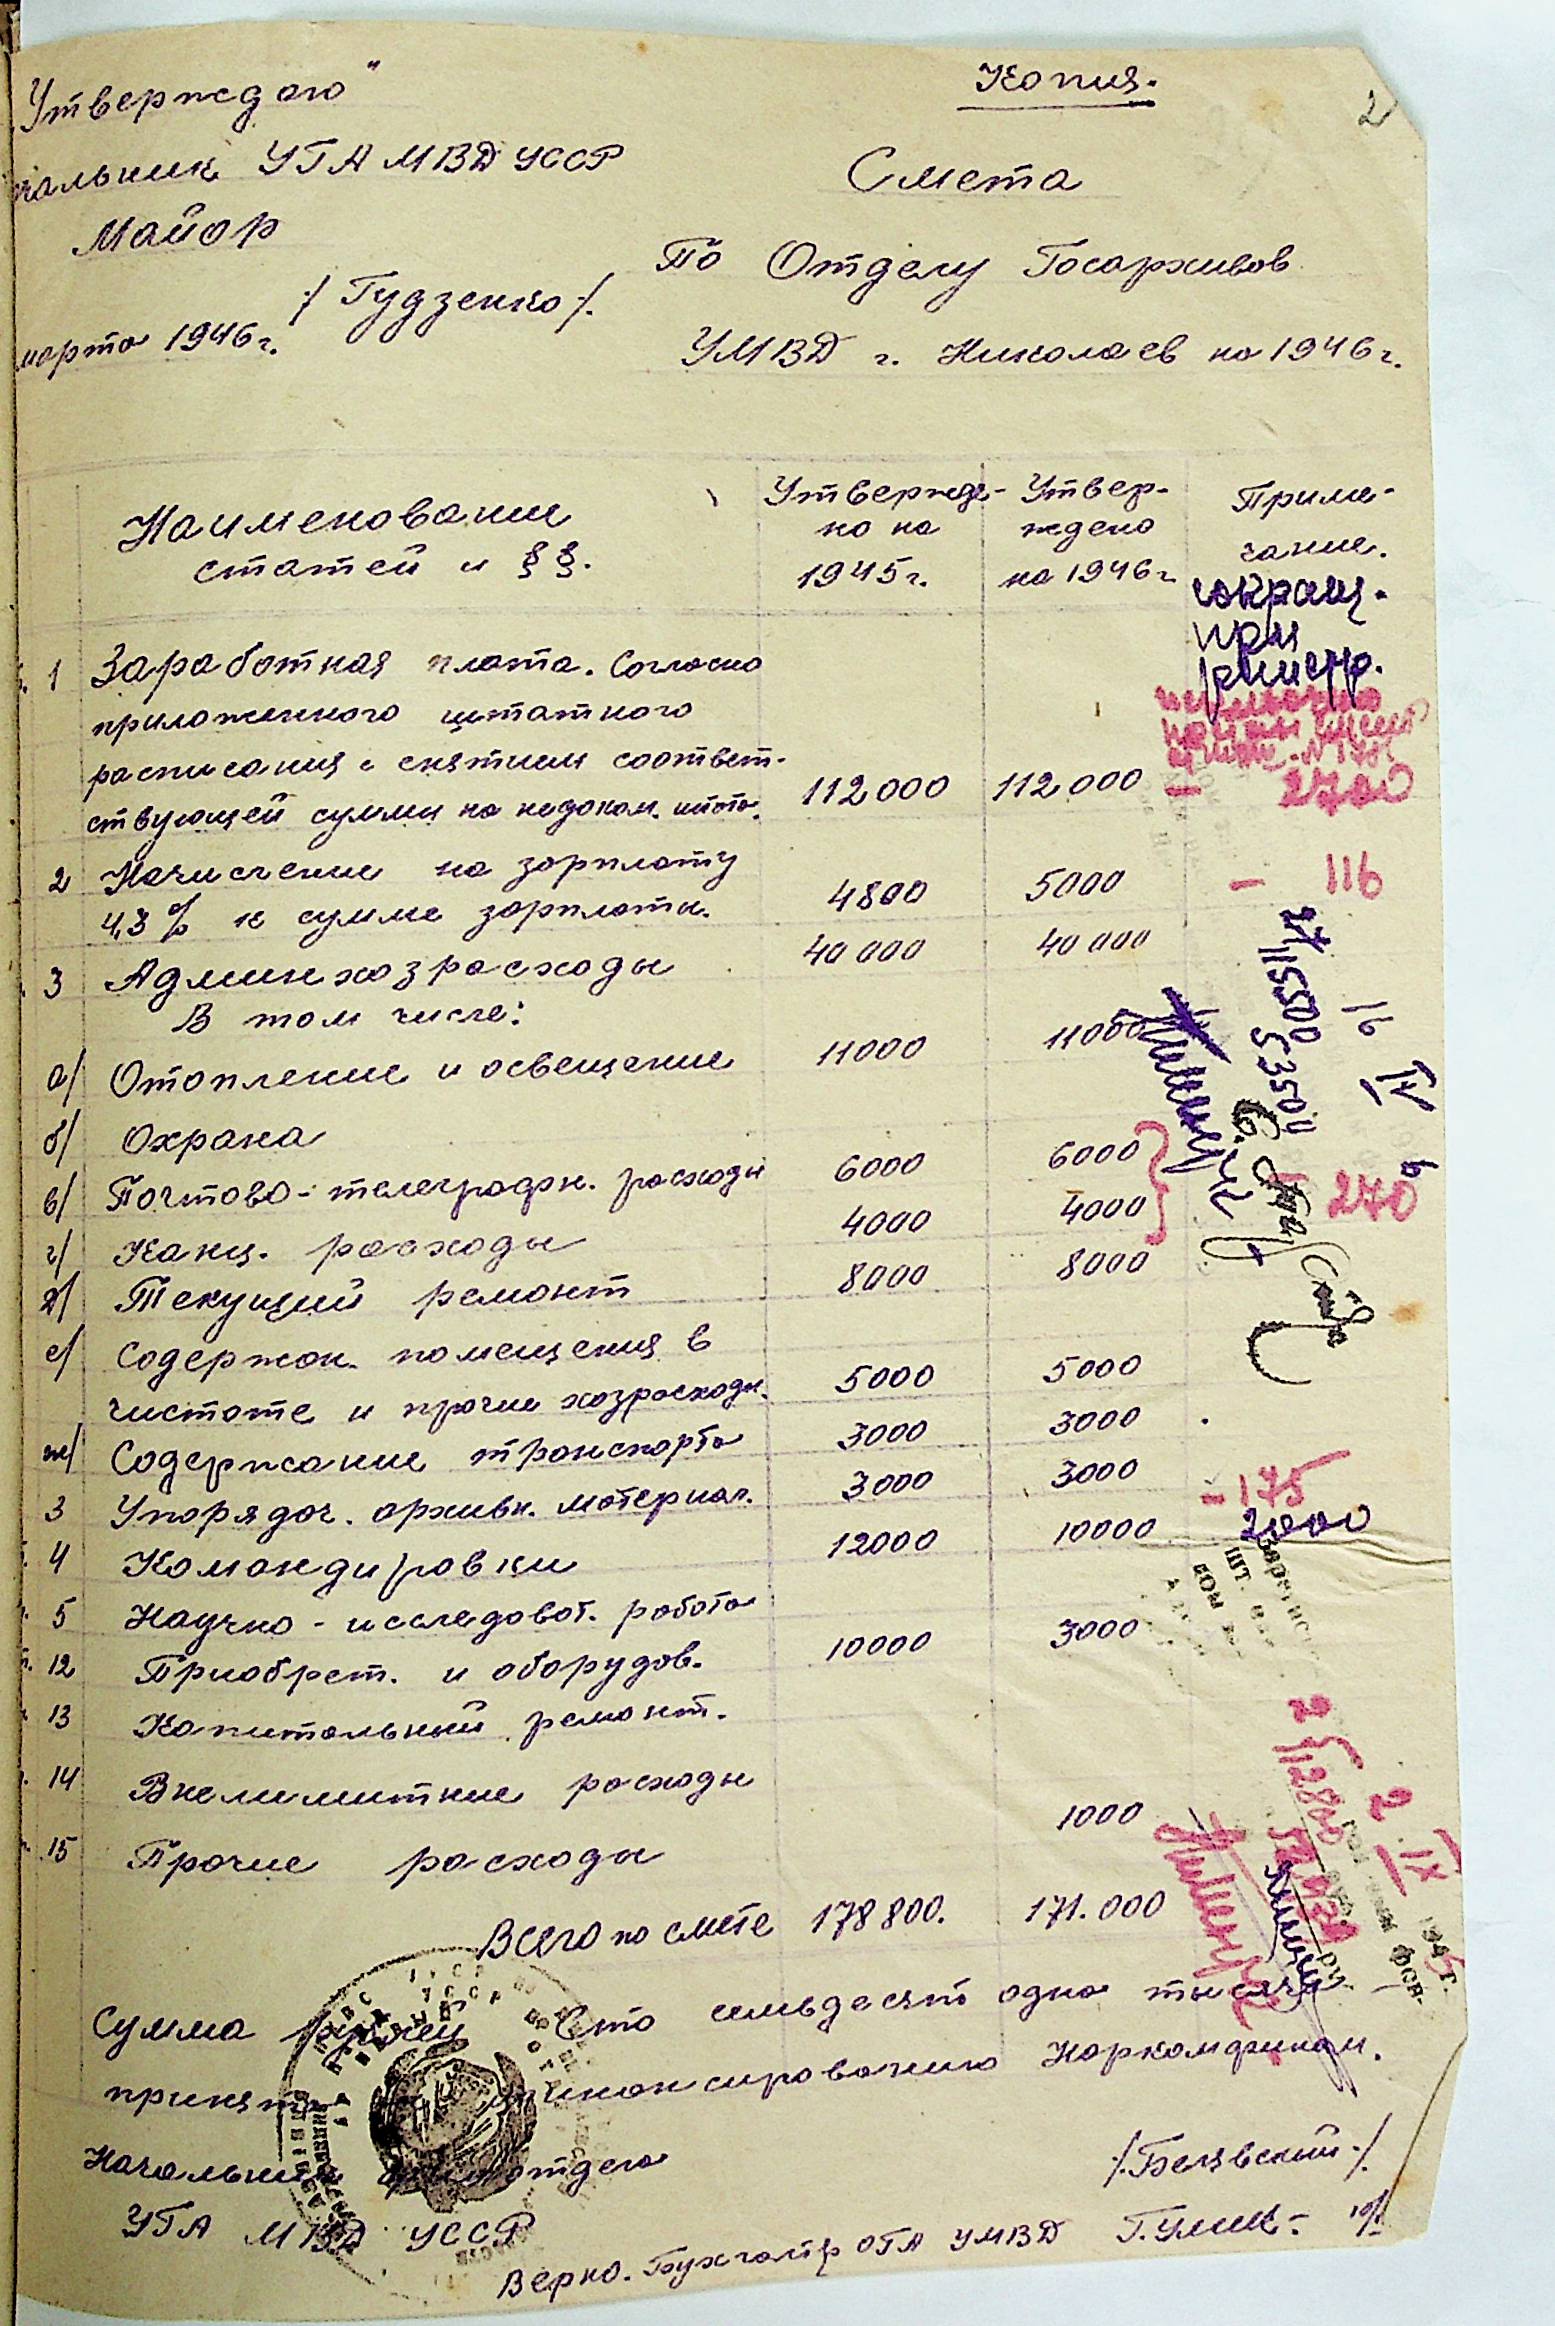 Утверждаю"
Копия.
2
чальник УГА МВД УССР
Смета
Майор
По Отделу Госархивов
/Гудзенко/.
марта 1946г.
УМВД г. Николаев на 1946г.
Наименование
статей и §§.
Утвержде-
но на
1945г.
Утвер-
ждено
на 1946г.
Приме-
чание.
сокращ.
при
регистр.
1 Заработная плата. Согласно
приложенного штатного
расписания с снятием соответ-
ствующей суммы на недоком. 112000 112000 - 2700
2 Начисление на зарплату
4,3% к сумме зарплаты. 4800 5000 - 116
3 Админхозрасходы 40000 40000
В том числе:
а/ Отопление и освещение 11000 11000
б/ Охрана
в/ Почтово-телеграфн. расходы 6000 6000
г/ Канц. расходы 4000 4000 - 270
д/ Текущий ремонт 8000 8000
е/ Содержан. помещения в
чистоте и прочие хозрасходы. 5000 5000
ж/ Содержание транспорта 3000 3000
з Упорядоч. архивн. материал. 3000 3000 - 175
4 Командировки 12000 10000 2000
5 Научно-исследоват. работа
12 Приобрет. и оборудов. 10000 3000
13 Капитальный ремонт.
14 Внелимитные расходы
15 Прочие расходы 1000
Всего по смете 178800. 171.000
27
115500
53504
16
IV
2
112800
2
IX
Сумма Сто семьдесят одна тысяча
принята финансированию Наркомфином.
Начальник отдела
/Белявский/.
УГА МВД УССР
Верно. Бухгалтер ОГА УМВД